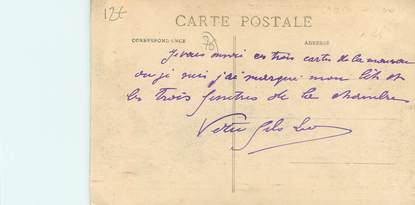 12€
CARTE POSTALE
CORRESPONDANCE
ADRESSE
Je vous envoi ces trois cartes de la maison
ou je suis j'ai marqué mon lit et
les trois fenetres de la chambre
Votre fils Leo